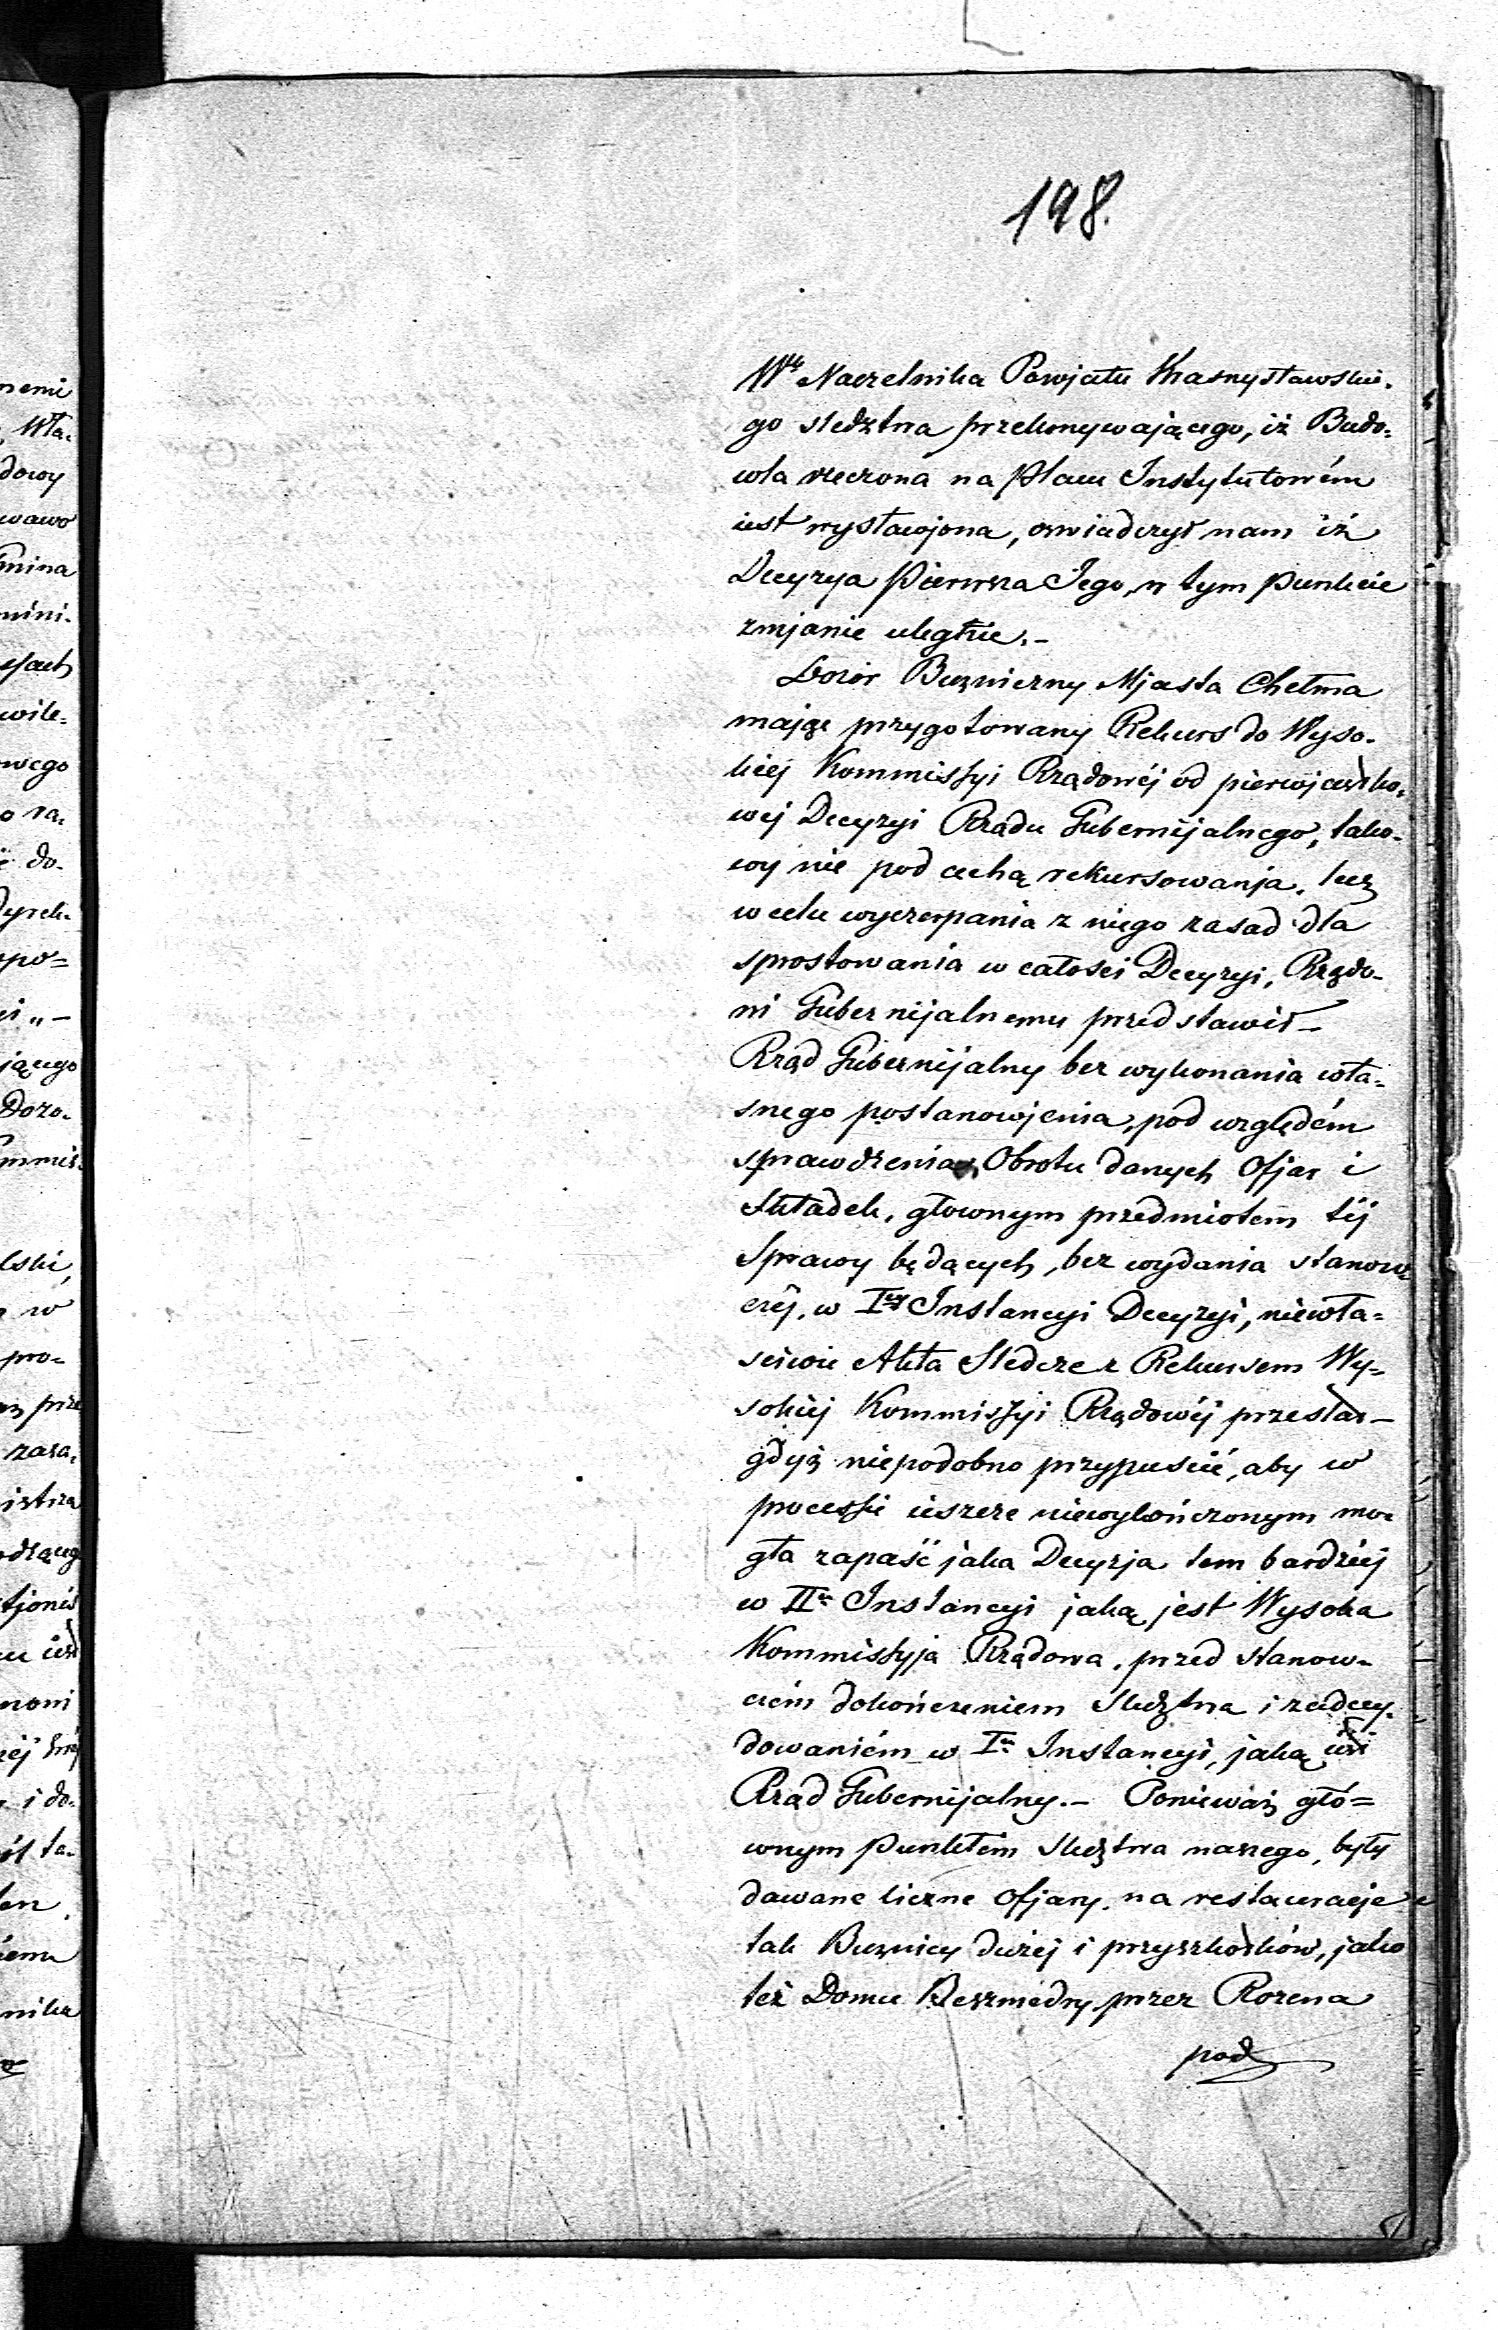 198.
Wgo Naczelnika Powjatu Krasnystawskie-
go sledztwa przekonywającego, iż Budo-
wla rzeczona na placu Instytutowém
iest wystawjona, oswiadczył nam iż
Decyzya pierwsza Jego, w tym punkcie
zmjanie ulegnie.-
Dozór Bużniczny Mjasta Chełma
mając przygotowany Rekurs do Wyso-
kiej Kommissyi Rządowéj od pierwjastko-
wej Decyzyi Rządu Gubernijalnego, tako-
wy nie pod cechą rekursowanja, lecz
w celu wyczerpania z niego zasad dla
sprostowania w całosci Decyzyi, Rządo-
wi Gubernijalnemu przedstawił -
Rząd Gubernijalny bez wykonania wła-
snego postanowjenia, pod względém
sprawdzenia Obrotu danych Ofjar i
Składek, głownym przedmiotem téj
Sprawy będących, bez wydania stanow-
czéj, w Iej Instancyi Decyzyi, niewła-
sciwie Akta Sledcze z Rekursem Wy-
sokiej Kommissyi Rządowéj przesłał -
gdyż niepodobno przypuscić, aby w
processie ieszcze niewykończonym mo-
gła zapaść jaka Decyzja tem bardziej
w IIej Instancyi jaką jest Wysoka
Kommissyja Rządowa, przed stanow-
czém dokończeniem Sledztwa i zadecy-
dowaniém w Iej Instancyi, jaką iest
Rząd Gubernijalny.- Ponieważ głó-
wnym punktem Sledztwa naszego, były
dawane liczne Ofjary, na restauracje
tak Bużnicy dużej i przyszkołków, jako
też Domu Beszmedry przez Rozena
pod